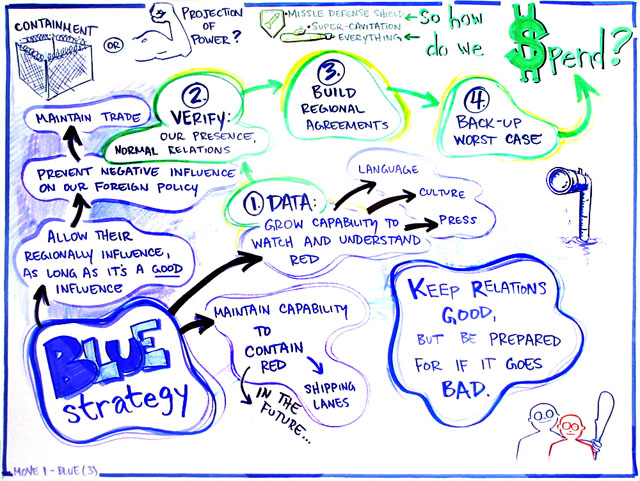 CONTAINMENT
OR
PROJECTION
OF
POWER?
• MISSLE DEFENSE SHIELD
• SUPER-CAVITATION
• EVERYTHING
So how
do we
$pend?
MAINTAIN TRADE
PREVENT NEGATIVE INFLUENCE
ON OUR FOREIGN POLICY
ALLOW THEIR
REGIONALLY INFLUENCE,
AS LONG AS IT'S A GOOD
INFLUENCE
2.
VERIFY:
OUR PRESENCE,
NORMAL RELATIONS
3.
BUILD
REGIONAL
AGREEMENTS
4.
BACK-UP
WORST CASE
1. DATA:
GROW CAPABILITY TO
WATCH AND UNDERSTAND
RED
LANGUAGE
CULTURE
PRESS
BLUE
strategy
MAINTAIN CAPABILITY
TO
CONTAIN
RED
IN THE
FUTURE...
SHIPPING
LANES
KEEP RELATIONS
GOOD,
BUT BE PREPARED
FOR IF IT GOES
BAD.
MOVE 1 - BLUE (3)